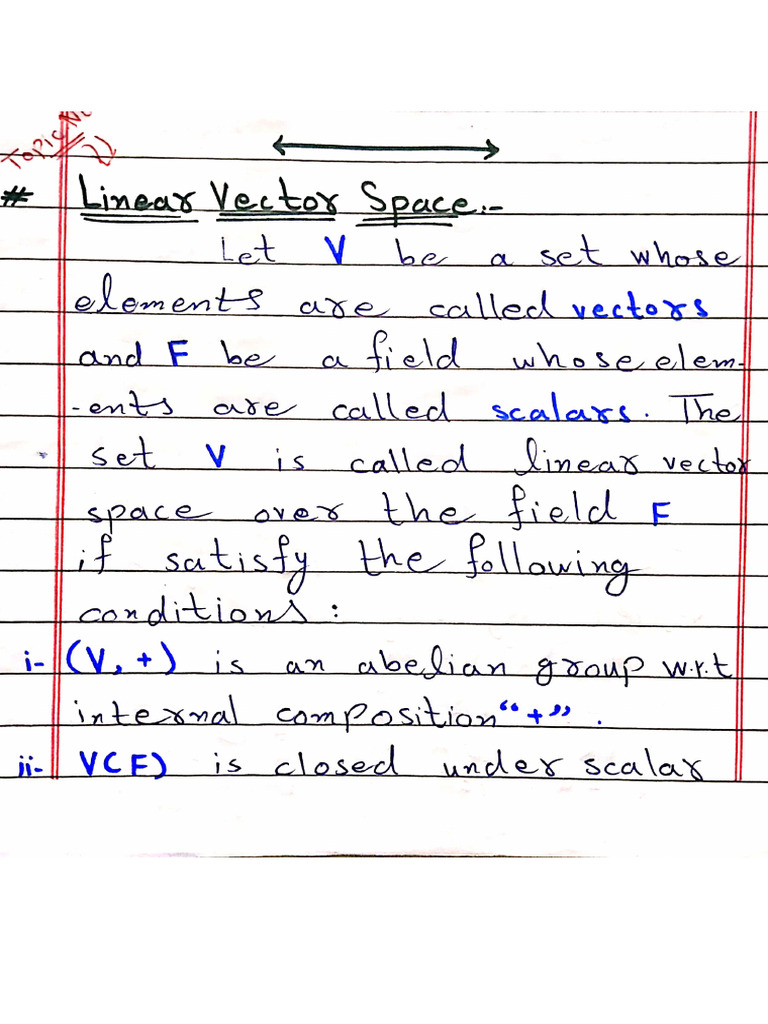 Topic No
21
# Linear Vector Space:-
Let V be a set whose
elements are called vectors
and F be a field whose elem-
-ents are called scalars. The
set V is called linear vector
space over the field F
if satisfy the following
conditions :
i- (V, +) is an abelian group w.r.t
internal composition "+" .
ii- V(F) is closed under scalar